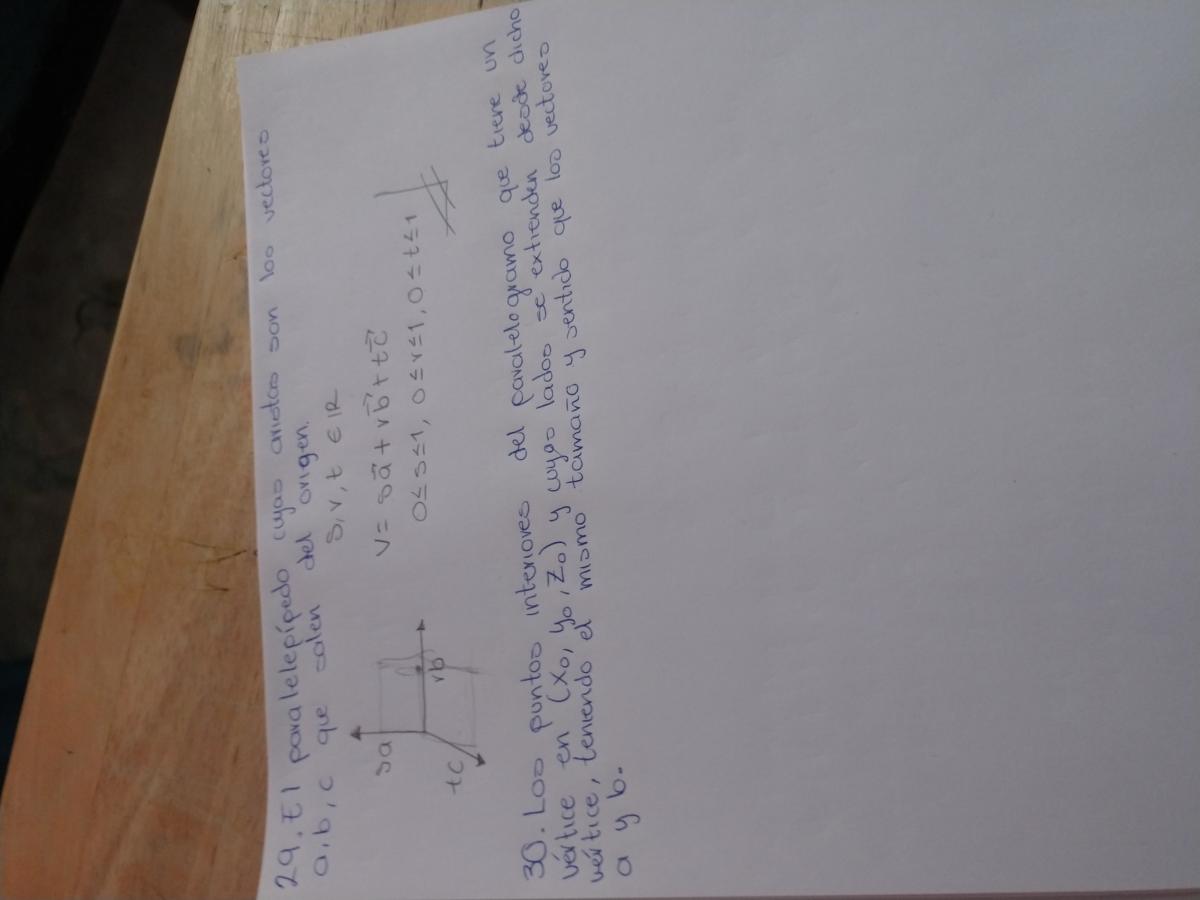 29. El paralelepípedo cuyas aristas son los vectores
a, b, c que salen del origen.
s, r, t ∈ ℝ
sa
rb
tc
v = sa⃗ + rb⃗ + tc⃗
0 ≤ s ≤ 1, 0 ≤ r ≤ 1, 0 ≤ t ≤ 1
30. Los puntos interiores del paralelogramo que tiene un
vértice en (x₀, y₀, z₀) y cuyos lados se extienden desde dicho
vértice, teniendo el mismo tamaño y sentido que los vectores
a y b.